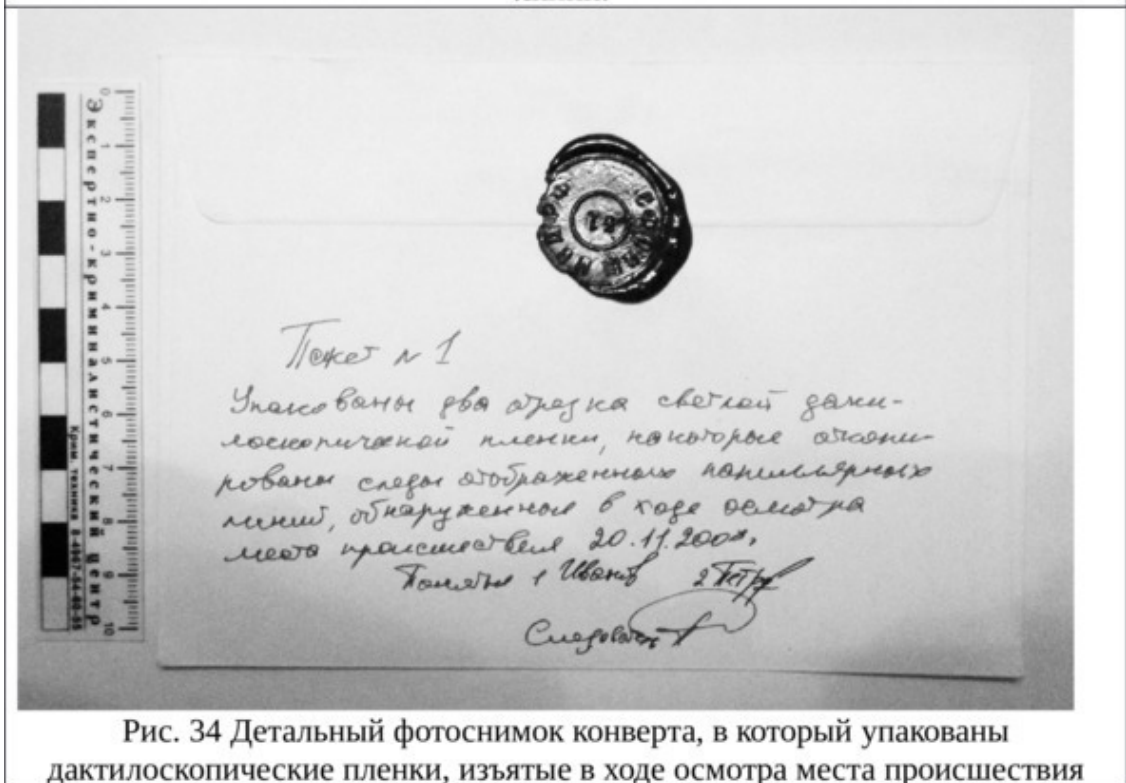 Экспертно-криминалистический центр
Крим. техника
0 1 2 3 4 5 6 7 8 9 10
31
Пакет № 1
Упакованы два отрезка светлой дакти-
лоскопической пленки, на которые откопи-
рованы следы отображенных папиллярных
линий, обнаруженные в ходе осмотра
места происшествия 20.11.200
Понятые 1 Иванов 2 Петров
Следователь
Рис. 34 Детальный фотоснимок конверта, в который упакованы
дактилоскопические пленки, изъятые в ходе осмотра места происшествия